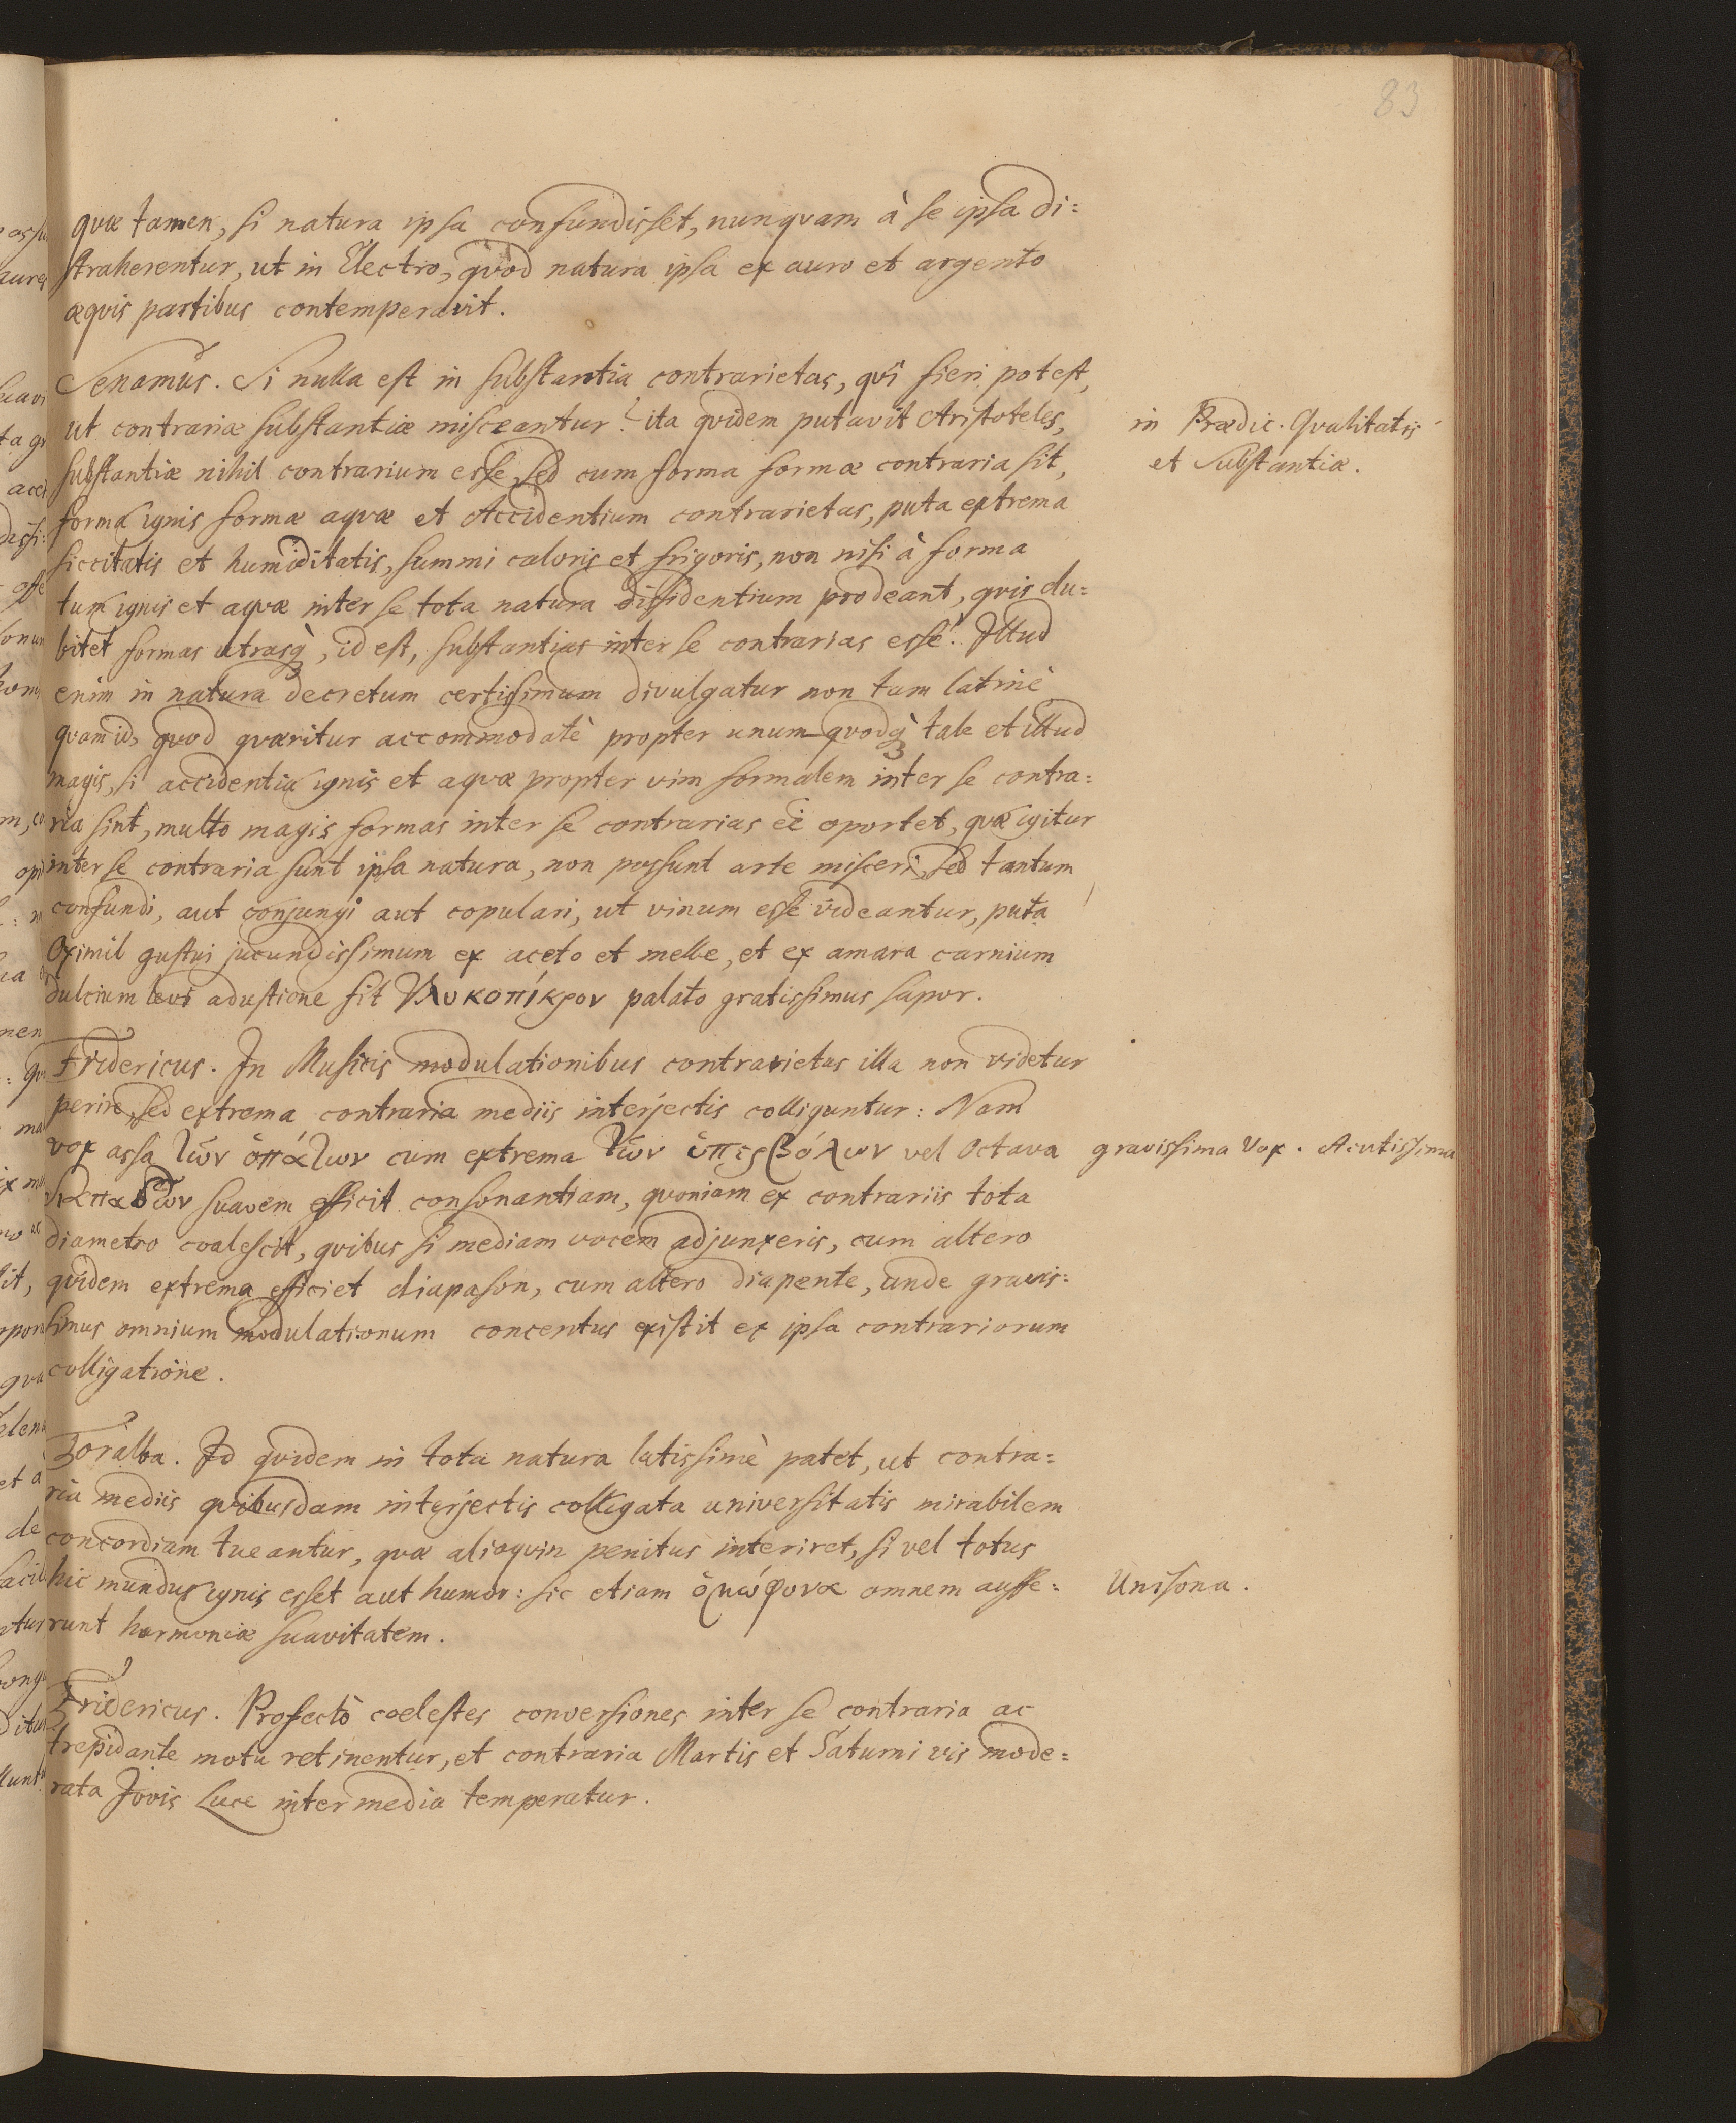 83
quæ tamen, si natura ipsa confundisset, nunquam à se ipsa di=
straherentur, ut in Electro, quod natura ipsa ex auro et argento
æquis partibus contemperavit.
Senamus. Si nulla est in substantia contrarietas, qvi fieri potest,
ut contrariæ substantiæ misceantur? ita qvidem putavit Aristoteles,
in Prædic. Qvalitatis
et Substantiæ.
substantiæ nihil contrarium esse, sed cum forma formæ contraria sit,
forma ignis formæ aqvæ et Accidentium contrarietas, puta extrema
siccitatis et humiditatis, summi caloris et frigoris, non nisi à forma
tum ignis et aqvæ inter se tota natura dissidentium prodeant, qvis du=
bitet formas utrasq̀, id est, substantias inter se contrarias esse? Illud
enim in natura decretum certissimum divulgatur non tam latinè
qvam id, qvod qværitur accommodatè propter unum qvodq̀ tale et illud
magis, si accidentia ignis et aqvæ propter vim formalem inter se contra=
ria sint, multo magis formas inter se contrarias eē oportet, qvæ igitur
inter se contraria sunt ipsa natura, non possunt arte misceri, sed tantum
confundi, aut conjungi aut copulari, ut vinum esse videantur, puta
Oximil gustui jucundissimum ex aceto et melle, et ex amara carnium
dulcium levi adustione fit γλυκοπίκρον palato gratissimus sapor.
Fridericus. In Musicis modulationibus contrarietas illa non videtur
perire, sed extrema contraria mediis interjectis colliguntur: Nam
vox assa τῶν ὑπάτων cum extrema τῶν ὑπερβόλων vel Octava
gravissima Vox. Acutissima
suavem efficit consonantiam, qvoniam ex contrariis tota
diametro coalescit, qvibus si mediam vocem adjunxeris, cum altero
qvidem extrema efficiet diapason, cum altero diapente, unde gravis=
simus omnium modulationum concentus existit ex ipsa contrariorum
colligatione.
Toralba. Id qvidem in tota natura latissimè patet, ut contra=
ria mediis qvibusdam interjectis colligata universitatis mirabilem
concordiam tueantur, qvæ alioqvin penitus interiret, si vel totus
hic mundus ignis esset aut humor: sic etiam ὁμώφονα omnem auffe=
Unisona.
runt harmoniæ suavitatem.
Fridericus. Profectò coelestes conversiones inter se contraria ac
trepidante motu retinentur, et contraria Martis et Saturni vis mode=
rata Jovis Luce intermedia temperatur.